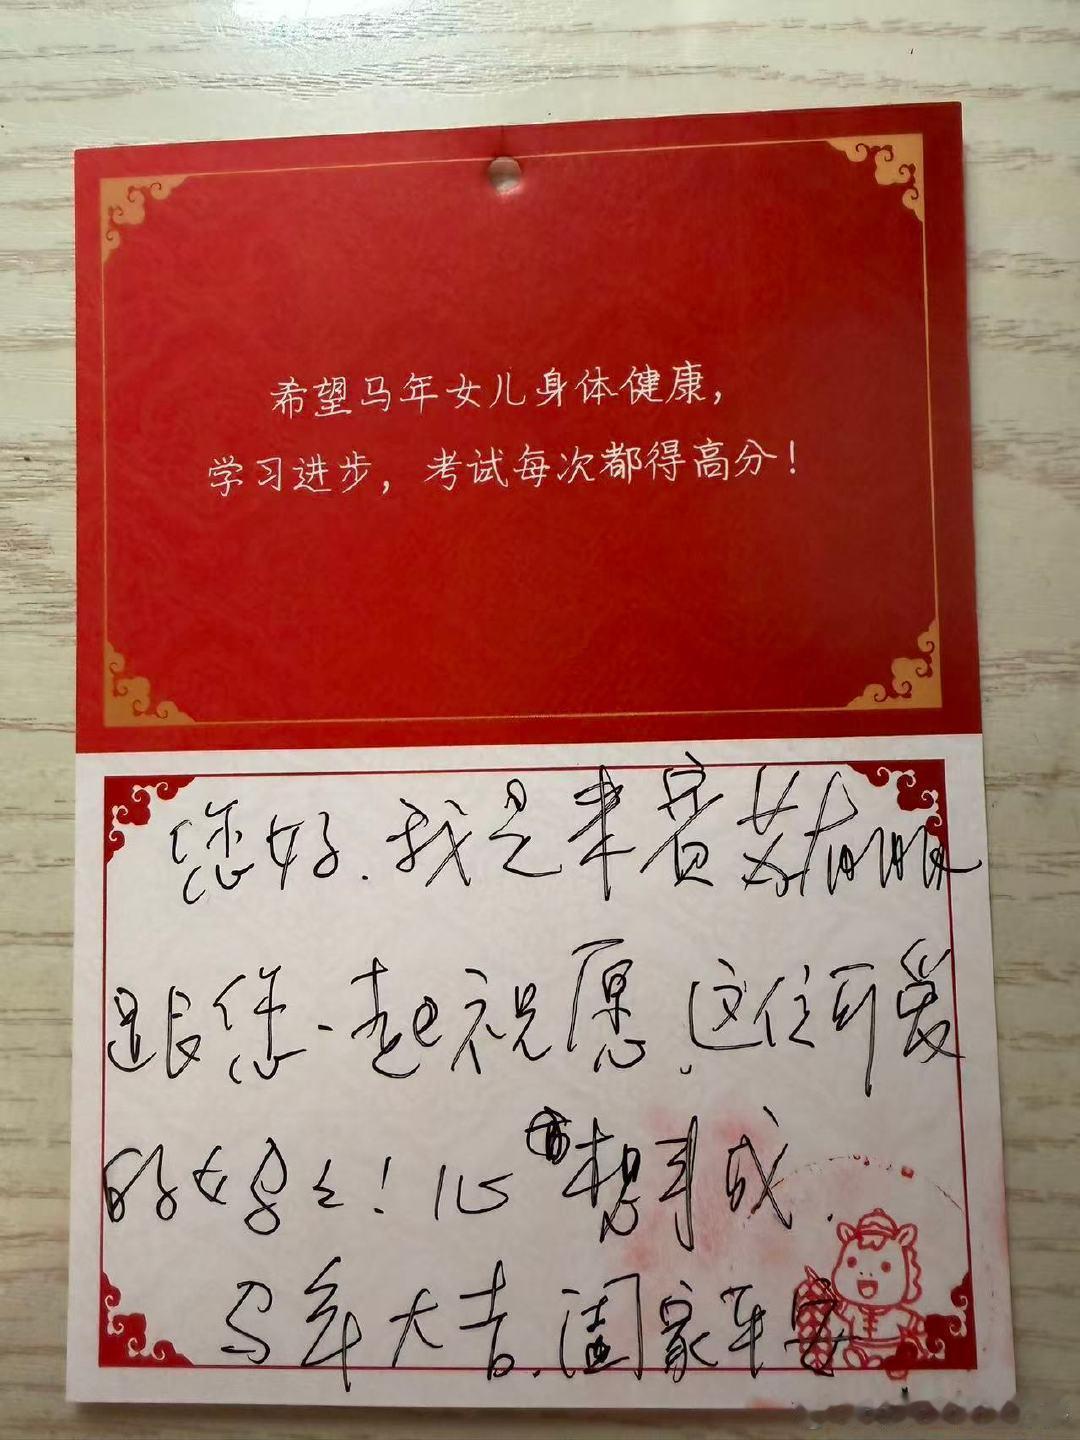 希望马年女儿身体健康，
学习进步，考试每次都得高分！
您好.我是
跟您一起祝愿.这位可爱
的女！心想事成.
马年大吉.阖家平安